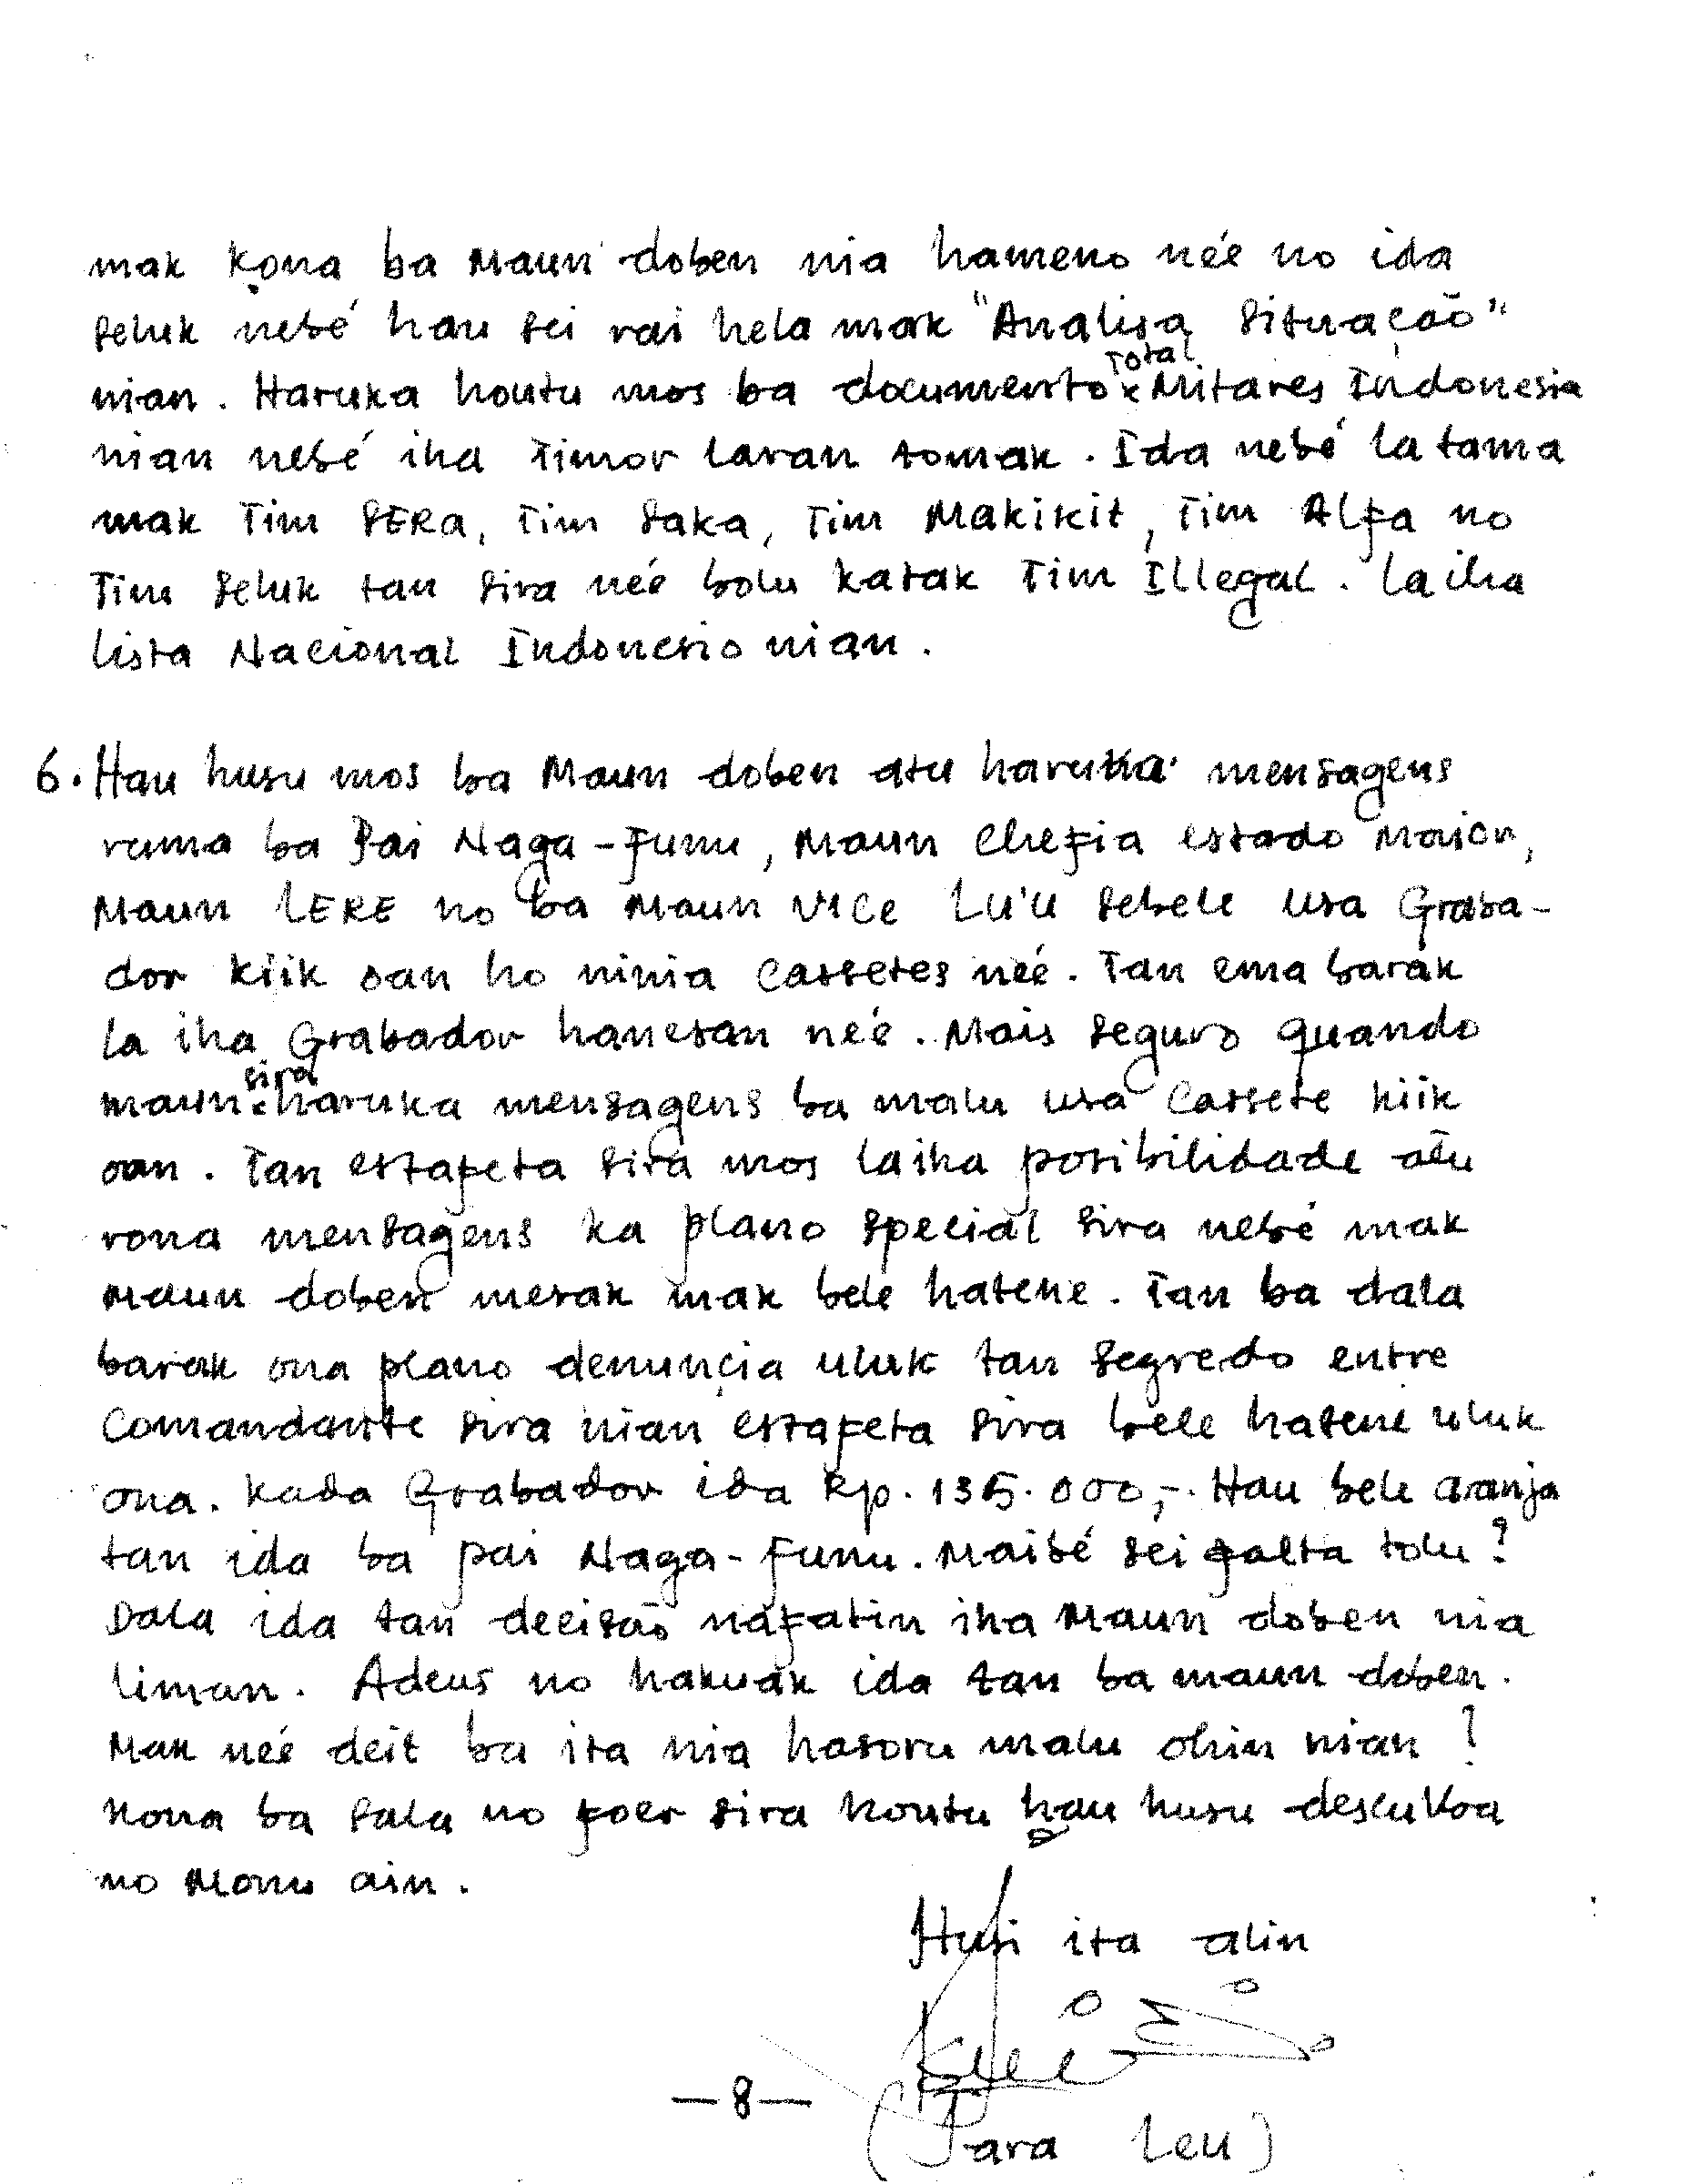 mak kona ba Maun doben nia hameno née no ida
seluk nebé hau sei rai hela mak "Analisa Situação"
nian. Haruka houtu mos ba documento Total Mitares Indonesia
nian nebé iha Timor laran tomak. Ida nebé la tama
mak Tim SERA, Tim Saka, Tim Makikit, Tim Alfa no
Tim seluk tan sira neé bolu katak Tim Illegal. la iha
lista Nacional Indonesio nian.
6. Hau husu mos ba Maun doben atu haruka mensagens
ruma ba Pai Naga-Funu, Maun Chefia estado Maior,
Maun LERE no ba Maun Vice Lu'u sebele usa Graba-
dor kiik oan ho ninia cassetes neé. Tan ema barak
la iha Grabador hanesan neé. Mais seguro quando
maun sira haruka mensagens ba malu usa Cassete kiik
oan. Tan estafeta sira mos la iha posibilidade atu
rona mensagens ka plano special sira nebé mak
Maun doben mesak mak bele hatene. Tan ba dala
barak ona plano denuncia uluk tan segredo entre
Comandante sira nian estafeta sira bele hatene uluk
ona. Kada Grabador ida Rp. 135.000,-. Hau bele aranja
tan ida ba pai Naga-Funu. Maibé sei falta tolu?
Dala ida tan decisão nafatin iha Maun doben nia
liman. Adeus no hakuak ida tan ba maun doben.
Mak neé deit ba ita nia hasoru malu ohin nian!
Kona ba sala no foer sira houtu hau husu desculpa
no Monu ain.
Husi ita alin
-8-
(Tara Leu)